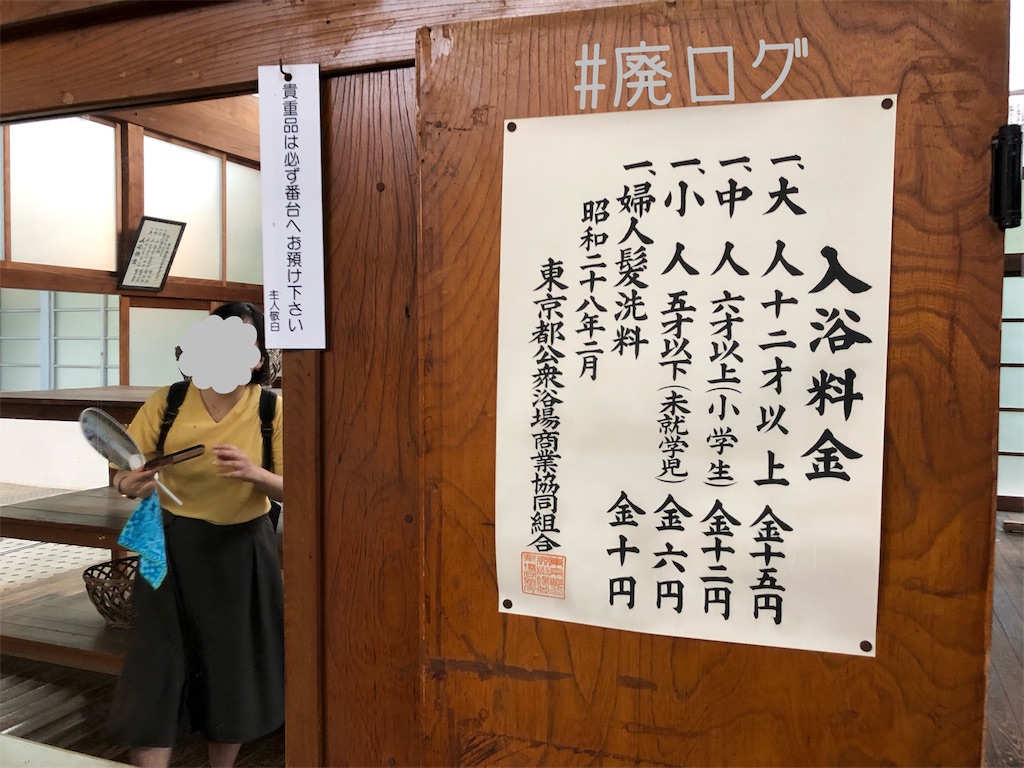 #廃ログ
入浴料金
一、大人十二才以上金十五円
一、中人六才以上(小学生)金十二円
一、小人五才以下(未就学児)金六円
一、婦人髪洗料金十円
昭和二十八年二月
東京都公衆浴場商業協同組合
貴重品は必ず番台へお預け下さい
主人敬白